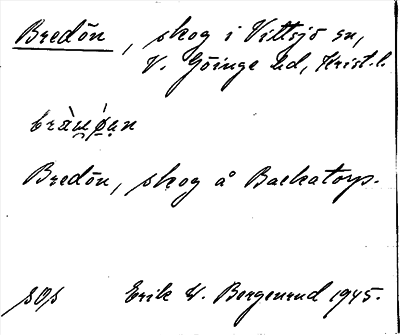 Bredön, skog i Vittsjö sn,
V. Göinge hd, Krist. l.
Bredön, skog å Backatorp.
Erik W. Bergenrud 1945.